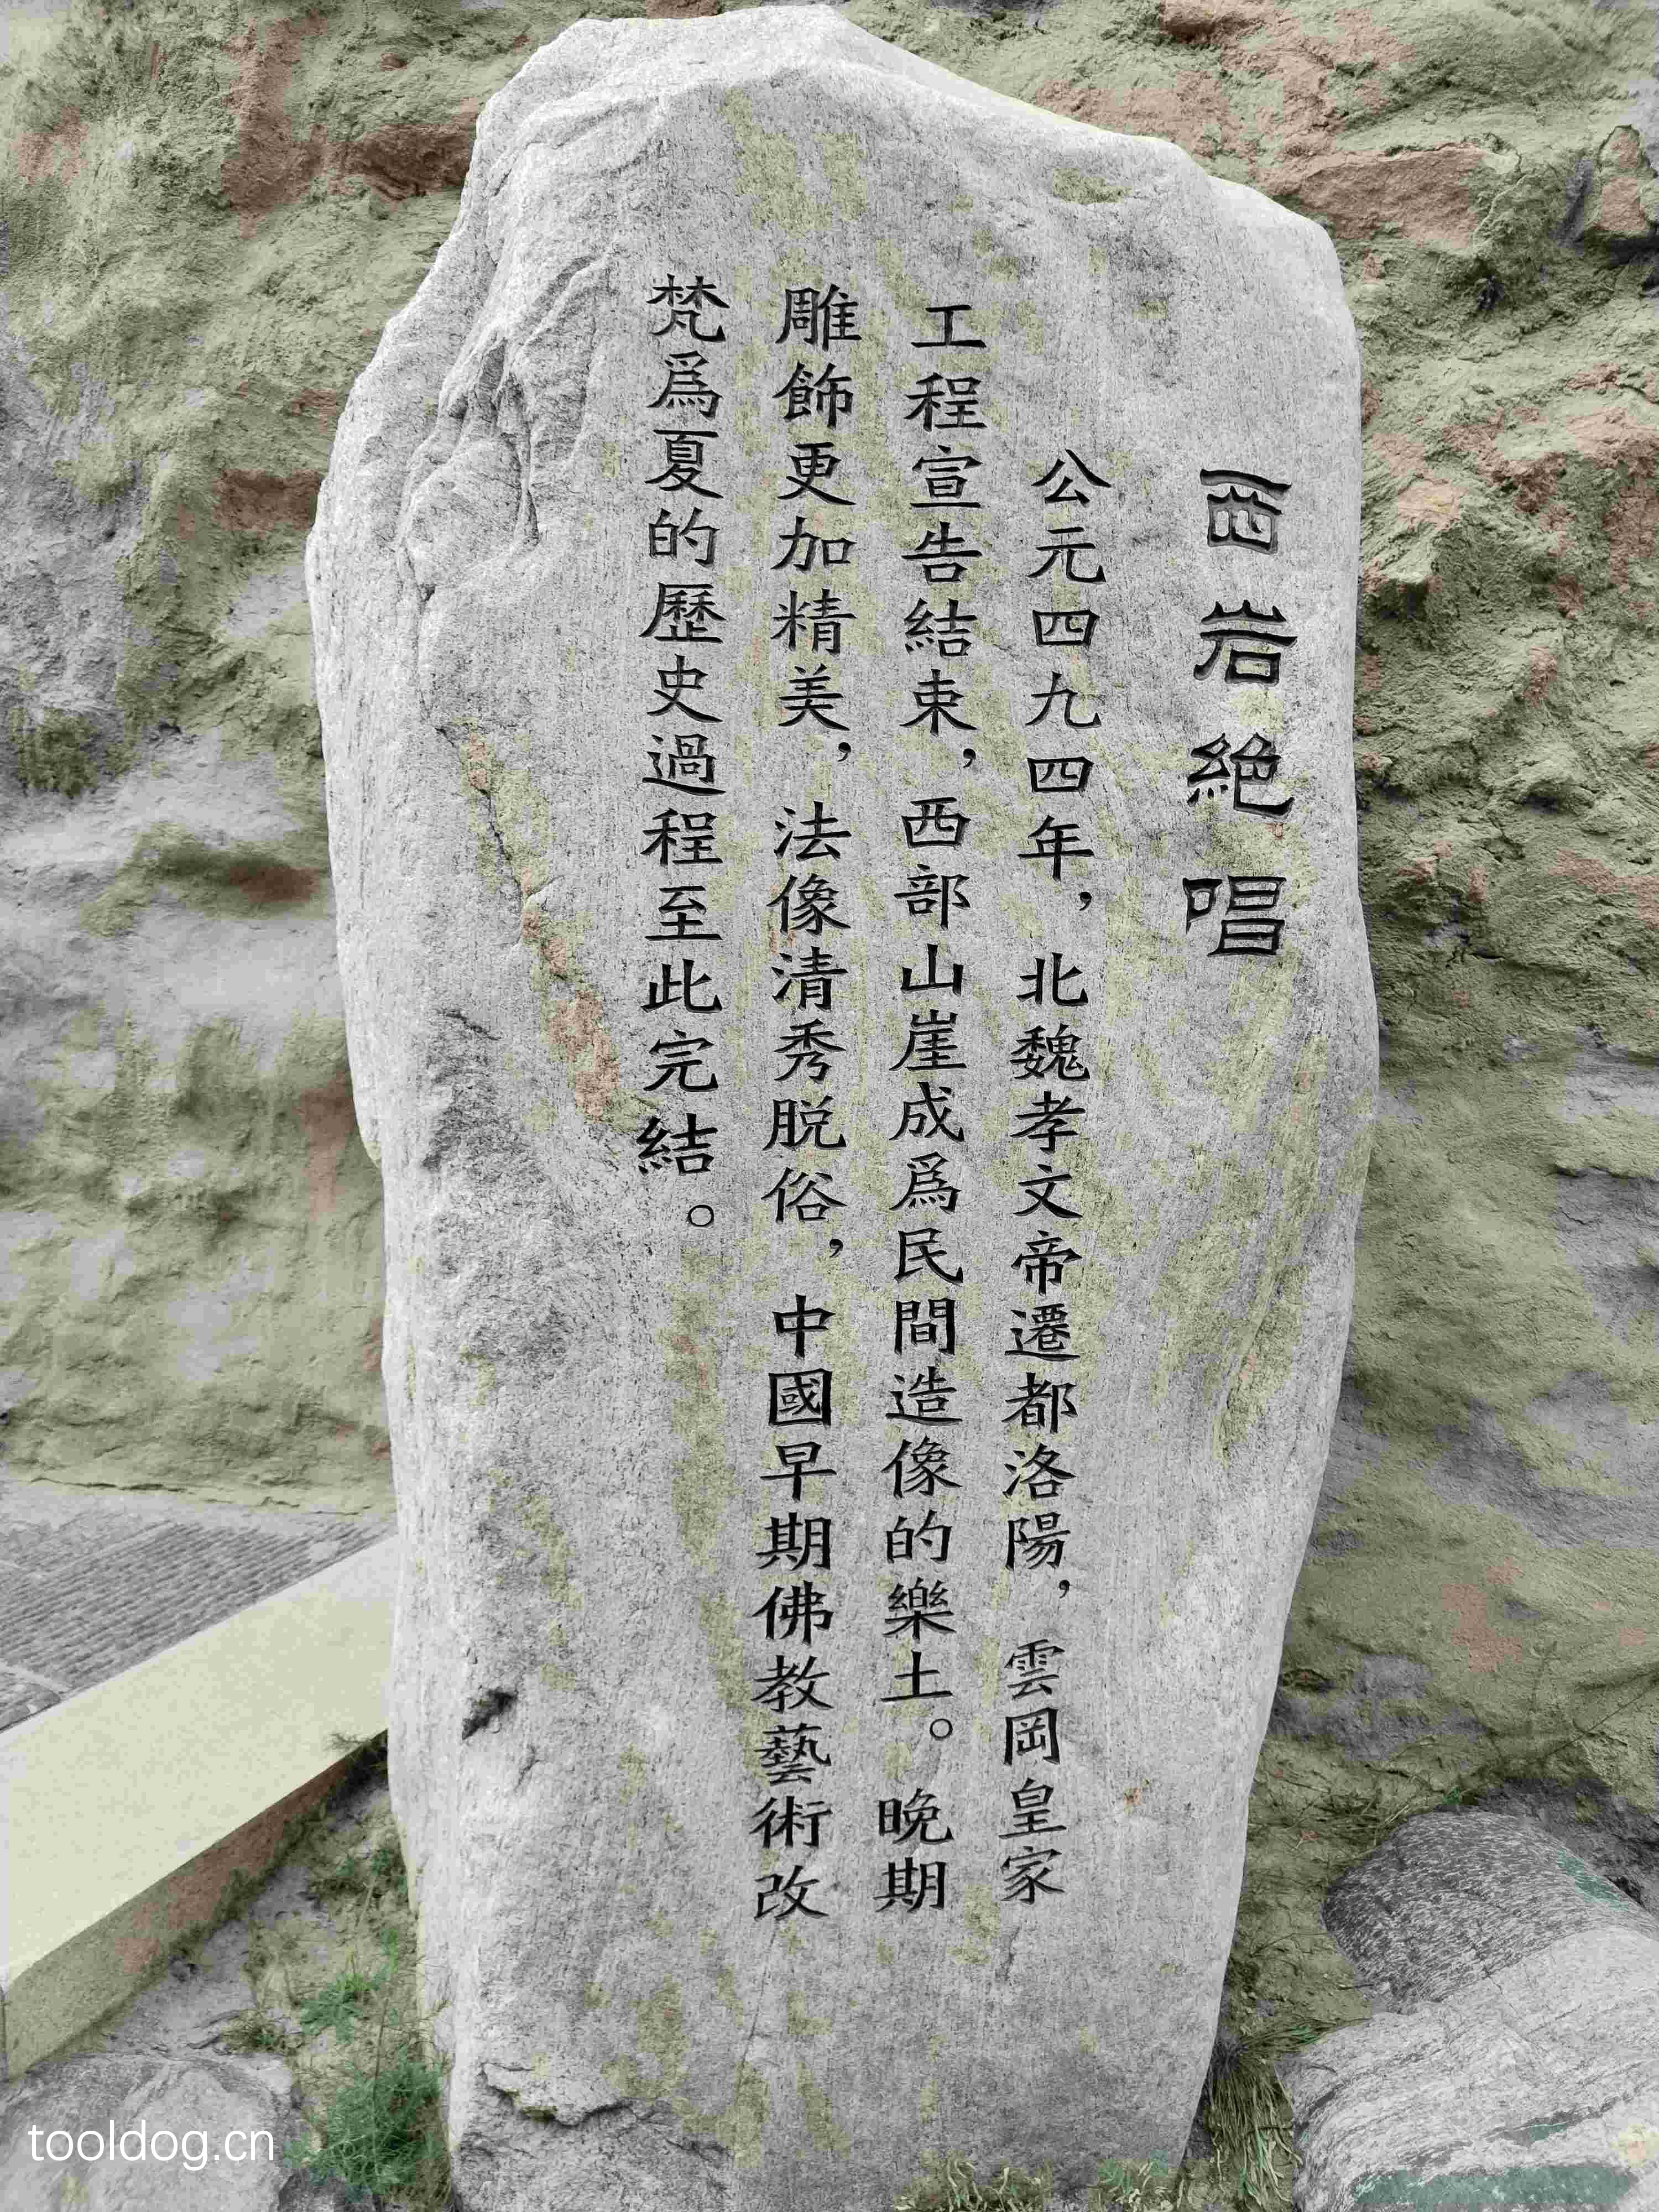 西岩絶唱
公元四九四年，北魏孝文帝遷都洛陽，雲岡皇家
工程宣告結束，西部山崖成爲民間造像的樂土。晚期
雕飾更加精美，法像清秀脱俗，中國早期佛教藝術改
梵爲夏的歷史過程至此完結。
tooldog.cn